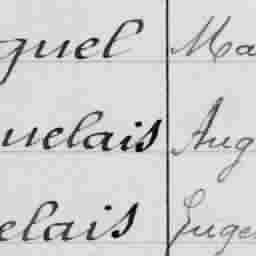 guel Ma
uelais Aug
elais Euge